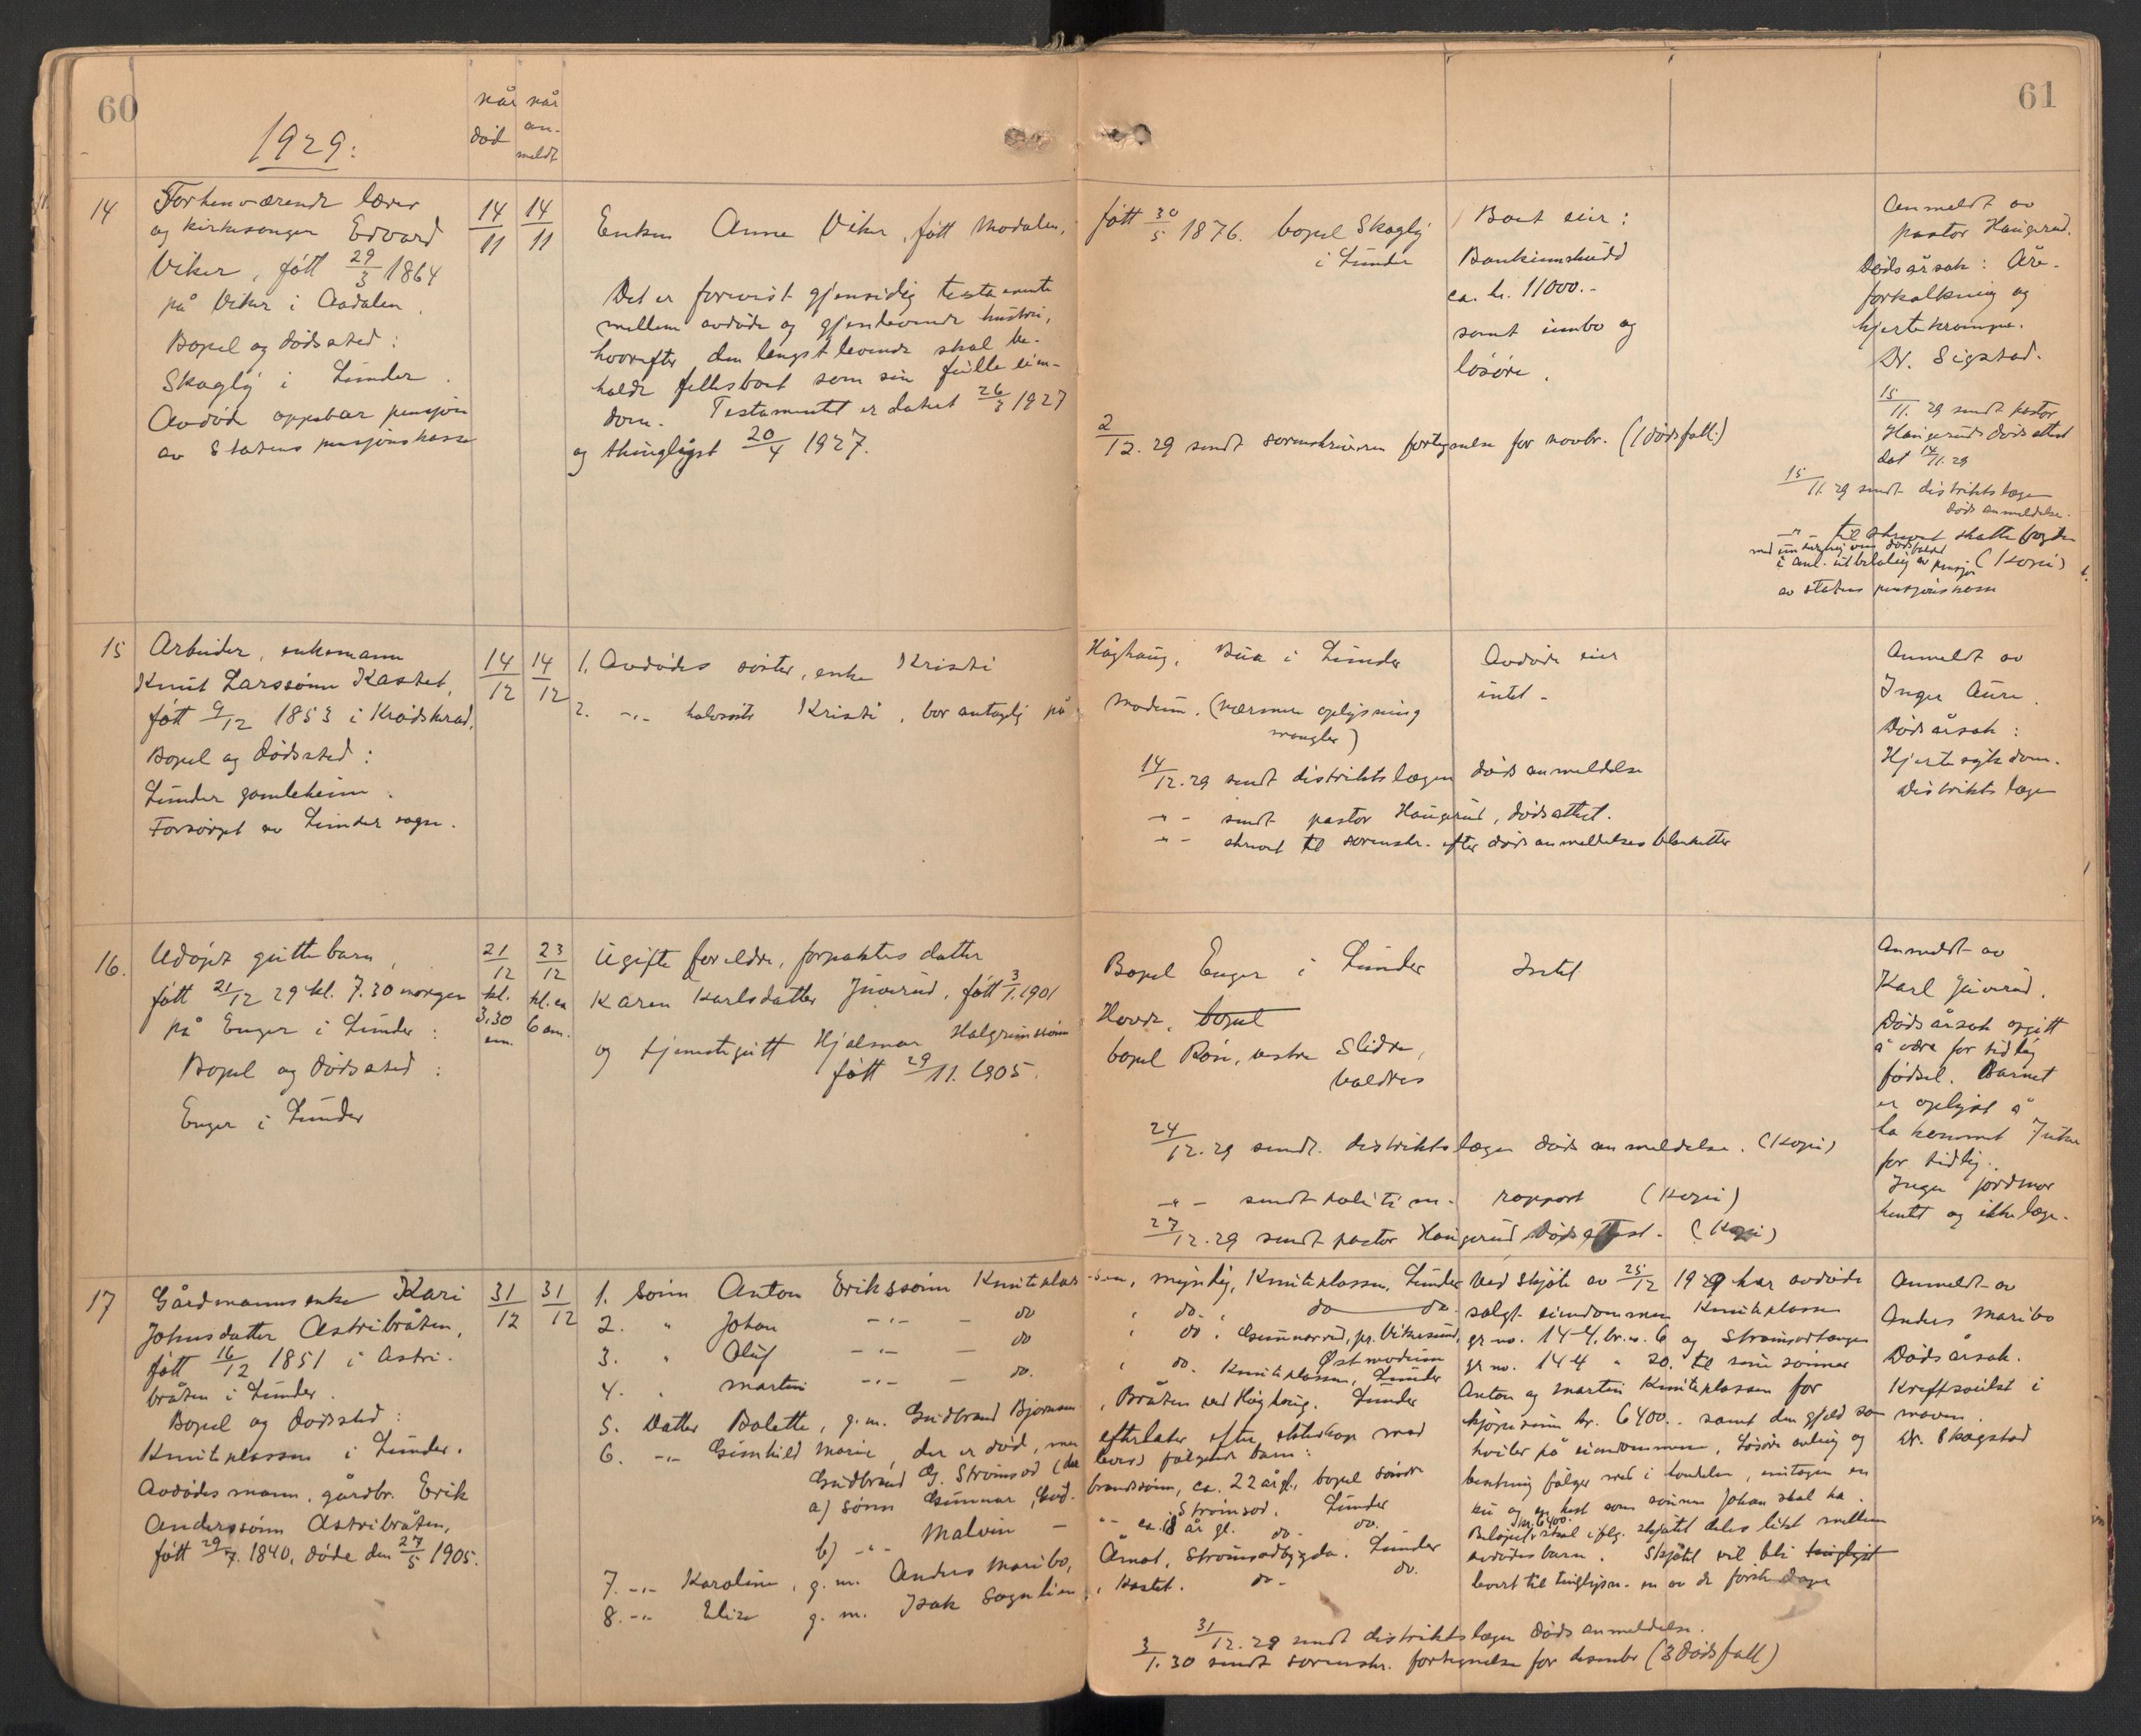 60
1929:
når død
når an-
meldt
61
14
Forhenværende lærer
og kirkesanger Edvard
Viker, født 29/3 1864
på Viker i Aadalen.
Bopel og dødssted:
Skagly i Lunder.
Avdøde oppebar pensjon
av Statens pensjonskasse
14/11
14/11
Enken Anne Viker, født Modalen,
født 30/5 1876. bopel Skogly
i Lunder
Det er forevist gjensidig testamente
mellem avdøde og gjenlevende hustru,
hvorefter den lengstlevende skal be-
holde fellesboet som sin fulle eien-
dom. Testamentet er datert 26/3 1927
og thinglyst 20/4 1927.
Boet eier:
Bankinnskudd
ca. kr. 11000.-
samt innbo og
løsøre.
2/12. 29 sendt sorenskriveren fortegnelse for novbr. (1 dødsfall.)
Anmeldt av
pastor Haugerud.
Dødsårsak: Åre-
forkalkning og
hjertekrampe.
Dr. Sigstad.
15/11. 29 sendt pastor
Haugerud dødsattest
dat 14/11. 29
15/11. 29 sendt distriktslægen
dødsanmeldelse.
-"- til skrevet skattefogden
med underretning om dødsfallet
i anl. utbetaling av pensjon (Kopi)
av statens pensjonskasse
15
Arbeider, enkemann
Knut Larssønn Kastet,
født 9/12 1853 i Krødsherad,
Bopel og dødssted:
Lunder gamleheim.
Forsørget av Lunder sogn.
14/12
14/12
1. Avdødes søster, enke Kristi
Høghaug, Bua i Lunder
2. -"- halvsøster Kristi, bor antagelig på
Modum. (nærmere oplysning
mangler)
Avdøde eier
intet -
14/12. 29 sendt distriktslægen dødsanmeldelse
-"- sendt pastor Haugerud, dødsattest.
-"- skrevet til sorenskr. efter dødsanmeldelsesblanketter
Anmeldt av
Inger Aure.
Dødsårsak:
Hjertesykdom.
Distriktslægen
16.
Udøpt guttebarn,
født 21/12 29 kl. 7.30 morgen
på Enger i Lunder:
Bopel og dødssted:
Enger i Lunder
21/12
kl.
3.30
em.
23/12
kl. ca
6 em.
Ugifte foreldre, forpakters datter
Karen Karlsdatter Juverud, født 3/1. 1901
og tjenestegutt Hjalmar Halgrimssønn
født 29/11. 1905.
Bopel Enger i Lunder
Hovde, bopel
bopel Røn, vestre Slidre,
Valdres
Intet
24/12. 29 sendt distriktslægen dødsanmeldelse. (Kopi)
-"- sendt politim. rapport (Kopi)
27/12. 29 sendt pastor Haugerud dødsattest. (Kopi)
Anmeldt av
Karl Juverud.
Dødsårsak opgitt
å være for tidlig
fødsel. Barnet
er oplyst å
ha kommet 7 uker
for tidlig.
Ingen jordmor
hentet og ikke læge.
17
Gårdmannsenke Kari
Johnsdatter Astribråten,
født 16/12 1851 i Astri-
bråten i Lunder.
Bopel og dødssted:
Knuteplassen i Lunder.
Avdødes mann, gårdbr. Erik
Anderssønn Astribråten,
født 29/7. 1840, døde den 27/5 1905.
31/12
31/12
1. Sønn Anton Erikssønn Knuteplas-sen, myndig, Knuteplassen, Lunder
2. " Johan -"- - do " do. " do do.
3. " Oluf -"- - do " do. Gunnarrud, pr. Vikersund,
Øst modum
4. " Martin -"- - do. " do. Knuteplassen, Lunder
5. Datter Bolette, g. m. Gudbrand Bjørnsen, Bråten ved Høghaug. Lunder
6. -"- Gunhild Marie, der er død, men efterlater efter ekteskap med
Gudbrand G. Strømsod (der lever) følgende barn:
a) sønn Gunnar Gud-brandssønn, ca. 22 år gl., bopel søndre
Strømsod. Lunder
b) -"- Malvin - "- ca. 18 år gl. do. do.
7. -"- Karoline, g. m. Anders Maribo, Åmot, Strømsodbygda. Lunder
8. -"- Elise g. m. Isak Sagnlien, Kastet. do. do.
Ved skjøte av 25/12 1929 har avdøde
solgt eiendommen Knuteplassen
gr. no. 144. br. no. 6 og Strømsodtangen
gr. no. 144 " 20. til sine sønner
Anton og Martin Knuteplassen for
kjøpesum kr. 6400.- samt den gjeld som
hviler på eiendommene, Løsøre avling og
besetning følger med i handelen, unntagen en
ku og en hest som sønnen Johan skal ha.
Beløpet kr. 6400 skal iflg. skjøtet deles likt mellem
avdødes barn. Skjøtet vil bli tinglyst
levert til tinglysn. en av de første dager
31/12. 29 sendt distriktslægen dødsanmeldelse.
3/1. 30 sendt sorenskr. fortegnelse for desembr (3 dødsfall)
Anmeldt av
Anders Maribo
Dødsårsak.
Kreftsvulst i
maven.
Dr. Skagstad